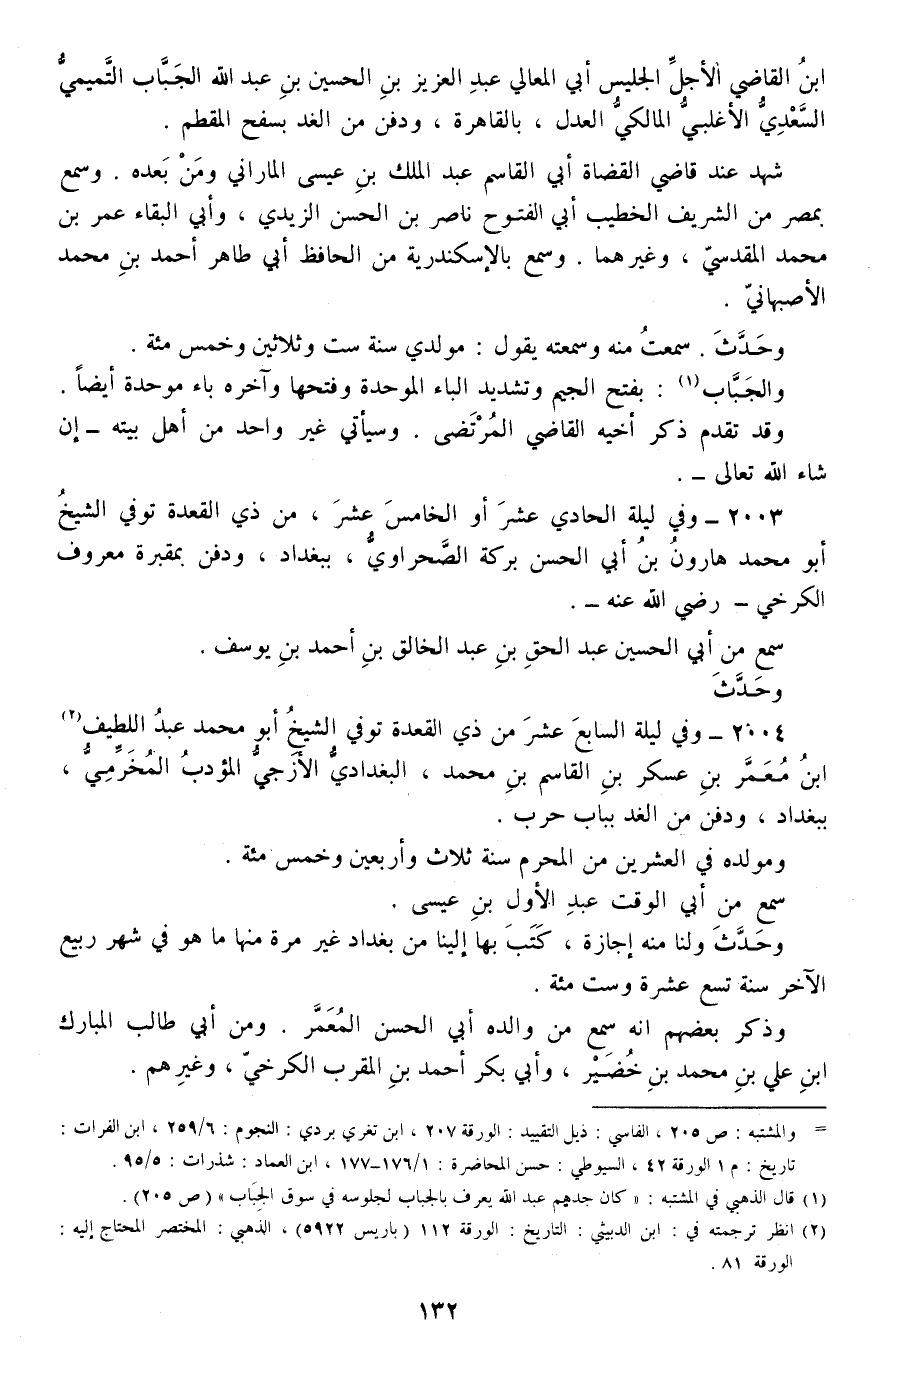 ابنُ القاضي الأجلِّ الجليس أبي المعالي عبدِ العزيز بنِ الحسين بنِ عبد الله الجَبَّاب التَّميميُّ
السَّعْدِيُّ الأغلبيُّ المالكيُّ العدل ، بالقاهرة ، ودفن من الغد بسفح المقطم .
شهد عند قاضي القضاة أبي القاسم عبد الملك بنِ عيسى الماراني ومَنْ بَعده . وسمع
بمصر من الشريف الخطيب أبي الفتوح ناصر بن الحسن الزيدي ، وأبي البقاء عمر بن
محمد المقدسيّ ، وغيرهما . وسمع بالإسكندرية من الحافظ أبي طاهر أحمد بنِ محمد
الأصبهانيّ .
وحَدَّثَ . سمعتُ منه وسمعته يقول : مولدي سنة ست وثلاثين وخمس مئة .
والجَبَّاب(١) : بفتح الجيم وتشديد الباء الموحدة وفتحها وآخره باء موحدة أيضاً .
وقد تقدم ذكر أخيه القاضي المُرْتَضى . وسيأتي غير واحد من أهل بيته ــ إن
شاء الله تعالى ــ .
٢٠٠٣ ــ وفي ليلة الحادي عشرَ أو الخامسَ عشرَ ، من ذي القعدة توفي الشيخُ
أبو محمد هارونُ بنُ أبي الحسن بركة الصَّحراويُّ ، ببغداد ، ودفن بمقبرة معروف
الكرخي ــ رضي الله عنه ــ .
سمع من أبي الحسين عبد الحقِ بنِ عبد الخالق بنِ أحمد بنِ يوسف .
وحَدَّثَ
٢٠٠٤ ــ وفي ليلة السابعَ عشرَ من ذي القعدة توفي الشيخُ أبو محمد عبدُ اللطيف(٢)
ابنُ مُعَمَّر بنِ عسكر بنِ القاسم بنِ محمد ، البغداديُّ الأزَجيُّ المؤدبُ المُخَرِّميُّ ،
ببغداد ، ودفن من الغد بباب حرب .
ومولده في العشرين من المحرم سنة ثلاث وأربعين وخمس مئة .
سمع من أبي الوقت عبدِ الأول بنِ عيسى .
وحَدَّثَ ولنا منه إجازة ، كَتَبَ بها إلينا من بغداد غير مرة منها ما هو في شهر ربيع
الآخر سنة تسع عشرة وست مئة .
وذكر بعضهم انه سمع من والده أبي الحسن المُعَمَّر . ومن أبي طالب المبارك
ابنِ علي بنِ محمد بنِ خُضَيْر ، وأبي بكر أحمد بنِ المقرب الكرخيّ ، وغيرِهم .
= والمشتبه : ص ٢٠٥ ، الفاسي : ذيل التقييد : الورقة ٢٠٧ ، ابن تغري بردي : النجوم : ٢٥٩/٦ ، ابن الفرات :
تاريخ : م ١ الورقة ٤٢ ، السيوطي : حسن المحاضرة : ١٧٦/١ــ١٧٧ ، ابن العماد : شذرات : ٩٥/٥ .
(١) قال الذهبي في المشتبه : « كان جدهم عبد الله يعرف بالجباب لجلوسه في سوق الجِبَاب » ( ص ٢٠٥) .
(٢) انظر ترجمته في : ابن الدبيثي : التاريخ : الورقة ١١٢ ( باريس ٥٩٢٢) ، الذهبي : المختصر المحتاج إليه :
الورقة ٨١ .
١٣٢